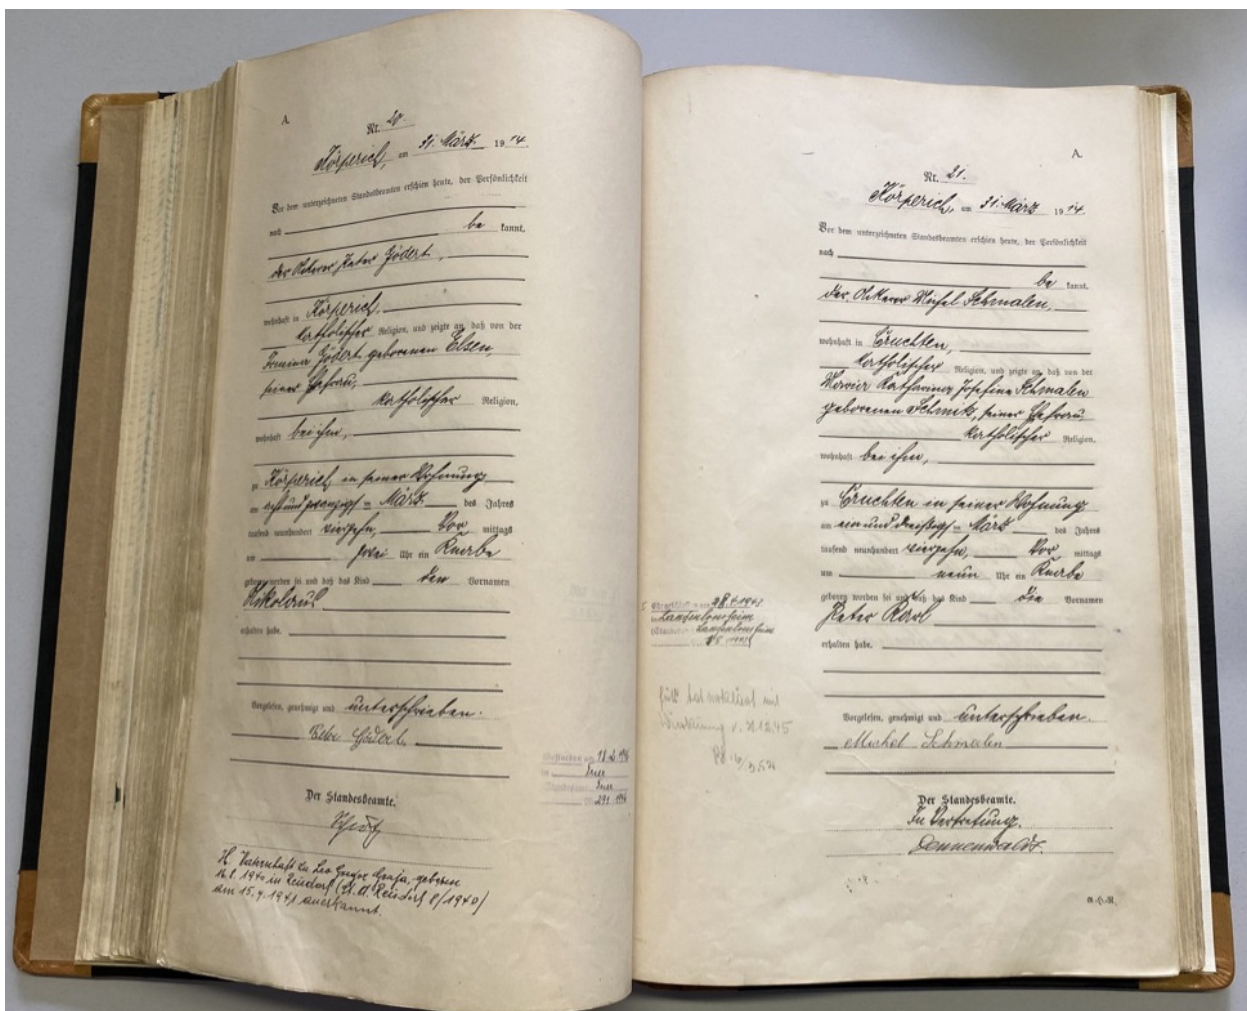 A.
Nr. 20.
Körperich, am 31. März 1914.
Vor dem unterzeichneten Standesbeamten erschien heute, der Persönlichkeit
nach be kannt,
der Ackerer Peter Gödert,
wohnhaft in Körperich,
katholischer Religion, und zeigte an, daß von der
Gödert geborenen Elsen,
seiner Ehefrau,
katholischer Religion,
wohnhaft bei ihm,
zu Körperich, in seiner Wohnung
am acht und zwanzigsten März des Jahres
tausend neunhundert vierzehn, Vor mittags
um zwei Uhr ein Knabe
geboren worden sei und daß das Kind den Vornamen
Nikolaus
erhalten habe.
Vorgelesen, genehmigt und unterschrieben.
Peter Gödert.
Der Standesbeamte.
H. Vaterschaft zu Leo geboren
1940 in
am 15.4.1941 anerkannt.
Gestorben am 18.2.
in Trier
Standesamt Trier
291
A.
Nr. 21.
Körperich, am 31. März 1914.
Vor dem unterzeichneten Standesbeamten erschien heute, der Persönlichkeit
nach
be kannt,
der Ackerer Michel Schmalen,
wohnhaft in Cruchten,
katholischer Religion, und zeigte an, daß von der
Maria Katharina Josefina Schmalen
geborenen Schmitz, seiner Ehefrau,
katholischer Religion,
wohnhaft bei ihm,
zu Cruchten in seiner Wohnung
am ein und dreißigsten März des Jahres
tausend neunhundert vierzehn, Vor mittags
um neun Uhr ein Knabe
geboren worden sei und daß das Kind die Vornamen
Peter Karl
erhalten habe.
Eheschließung am 28.4.1941
in Langenlonsheim
Standesamt Langenlonsheim
Für tot erklärt mit
Wirkung v. 31.12.45
Vorgelesen, genehmigt und unterschrieben.
Michel Schmalen
Der Standesbeamte.
In Vertretung.
Dennenwaldt.